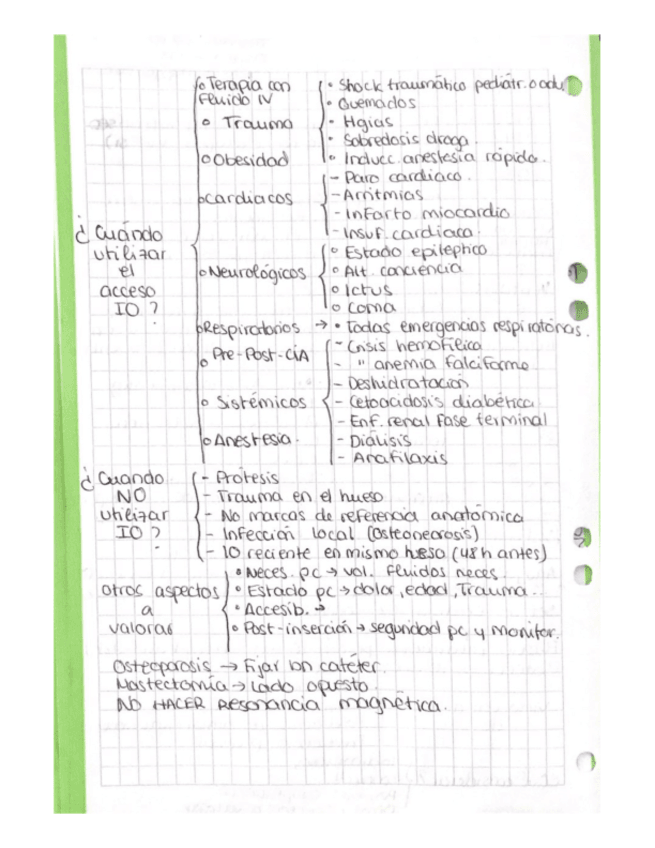 ¿Cuándo
utilizar
el
acceso
IO?
o Terapia con
Fluido IV
o Trauma
o Obesidad
o Cardiacos
o Neurológicos
o Respiratorios → • Todas emergencias respiratorias.
o Pre-Post-CIA
o Sistémicos
o Anestesia.
• Shock traumático pediátr. o adu
• Quemados
• Hgias
• Sobredosis droga.
• Inducc. anestesia rápida.
- Paro cardiaco.
- Arritmias
- Infarto miocardio
- Insuf. cardiaca
o Estado epileptico
o Alt. conciencia
o Ictus
o Coma
- Crisis hemofílica
- " anemia falciforme
- Deshidratación
- Cetoacidosis diabética
- Enf. renal fase terminal
- Diálisis
- Anafilaxis
¿Cuando
NO
utilizar
IO?
- Prótesis
- Trauma en el hueso
- No marcas de referencia anatómica
- Infección local (osteonecrosis)
- IO reciente en mismo hueso (48h antes)
otros aspectos
a
valorar
• Neces. pc → vol. fluidos neces.
• Estado pc → dolor, edad, Trauma.
• Accesib. →
• Post-inserción → seguridad pc y monitor.
Osteoporosis → Fijar bn catéter.
Mastectomía → Lado opuesto
NO HACER Resonancia magnética.